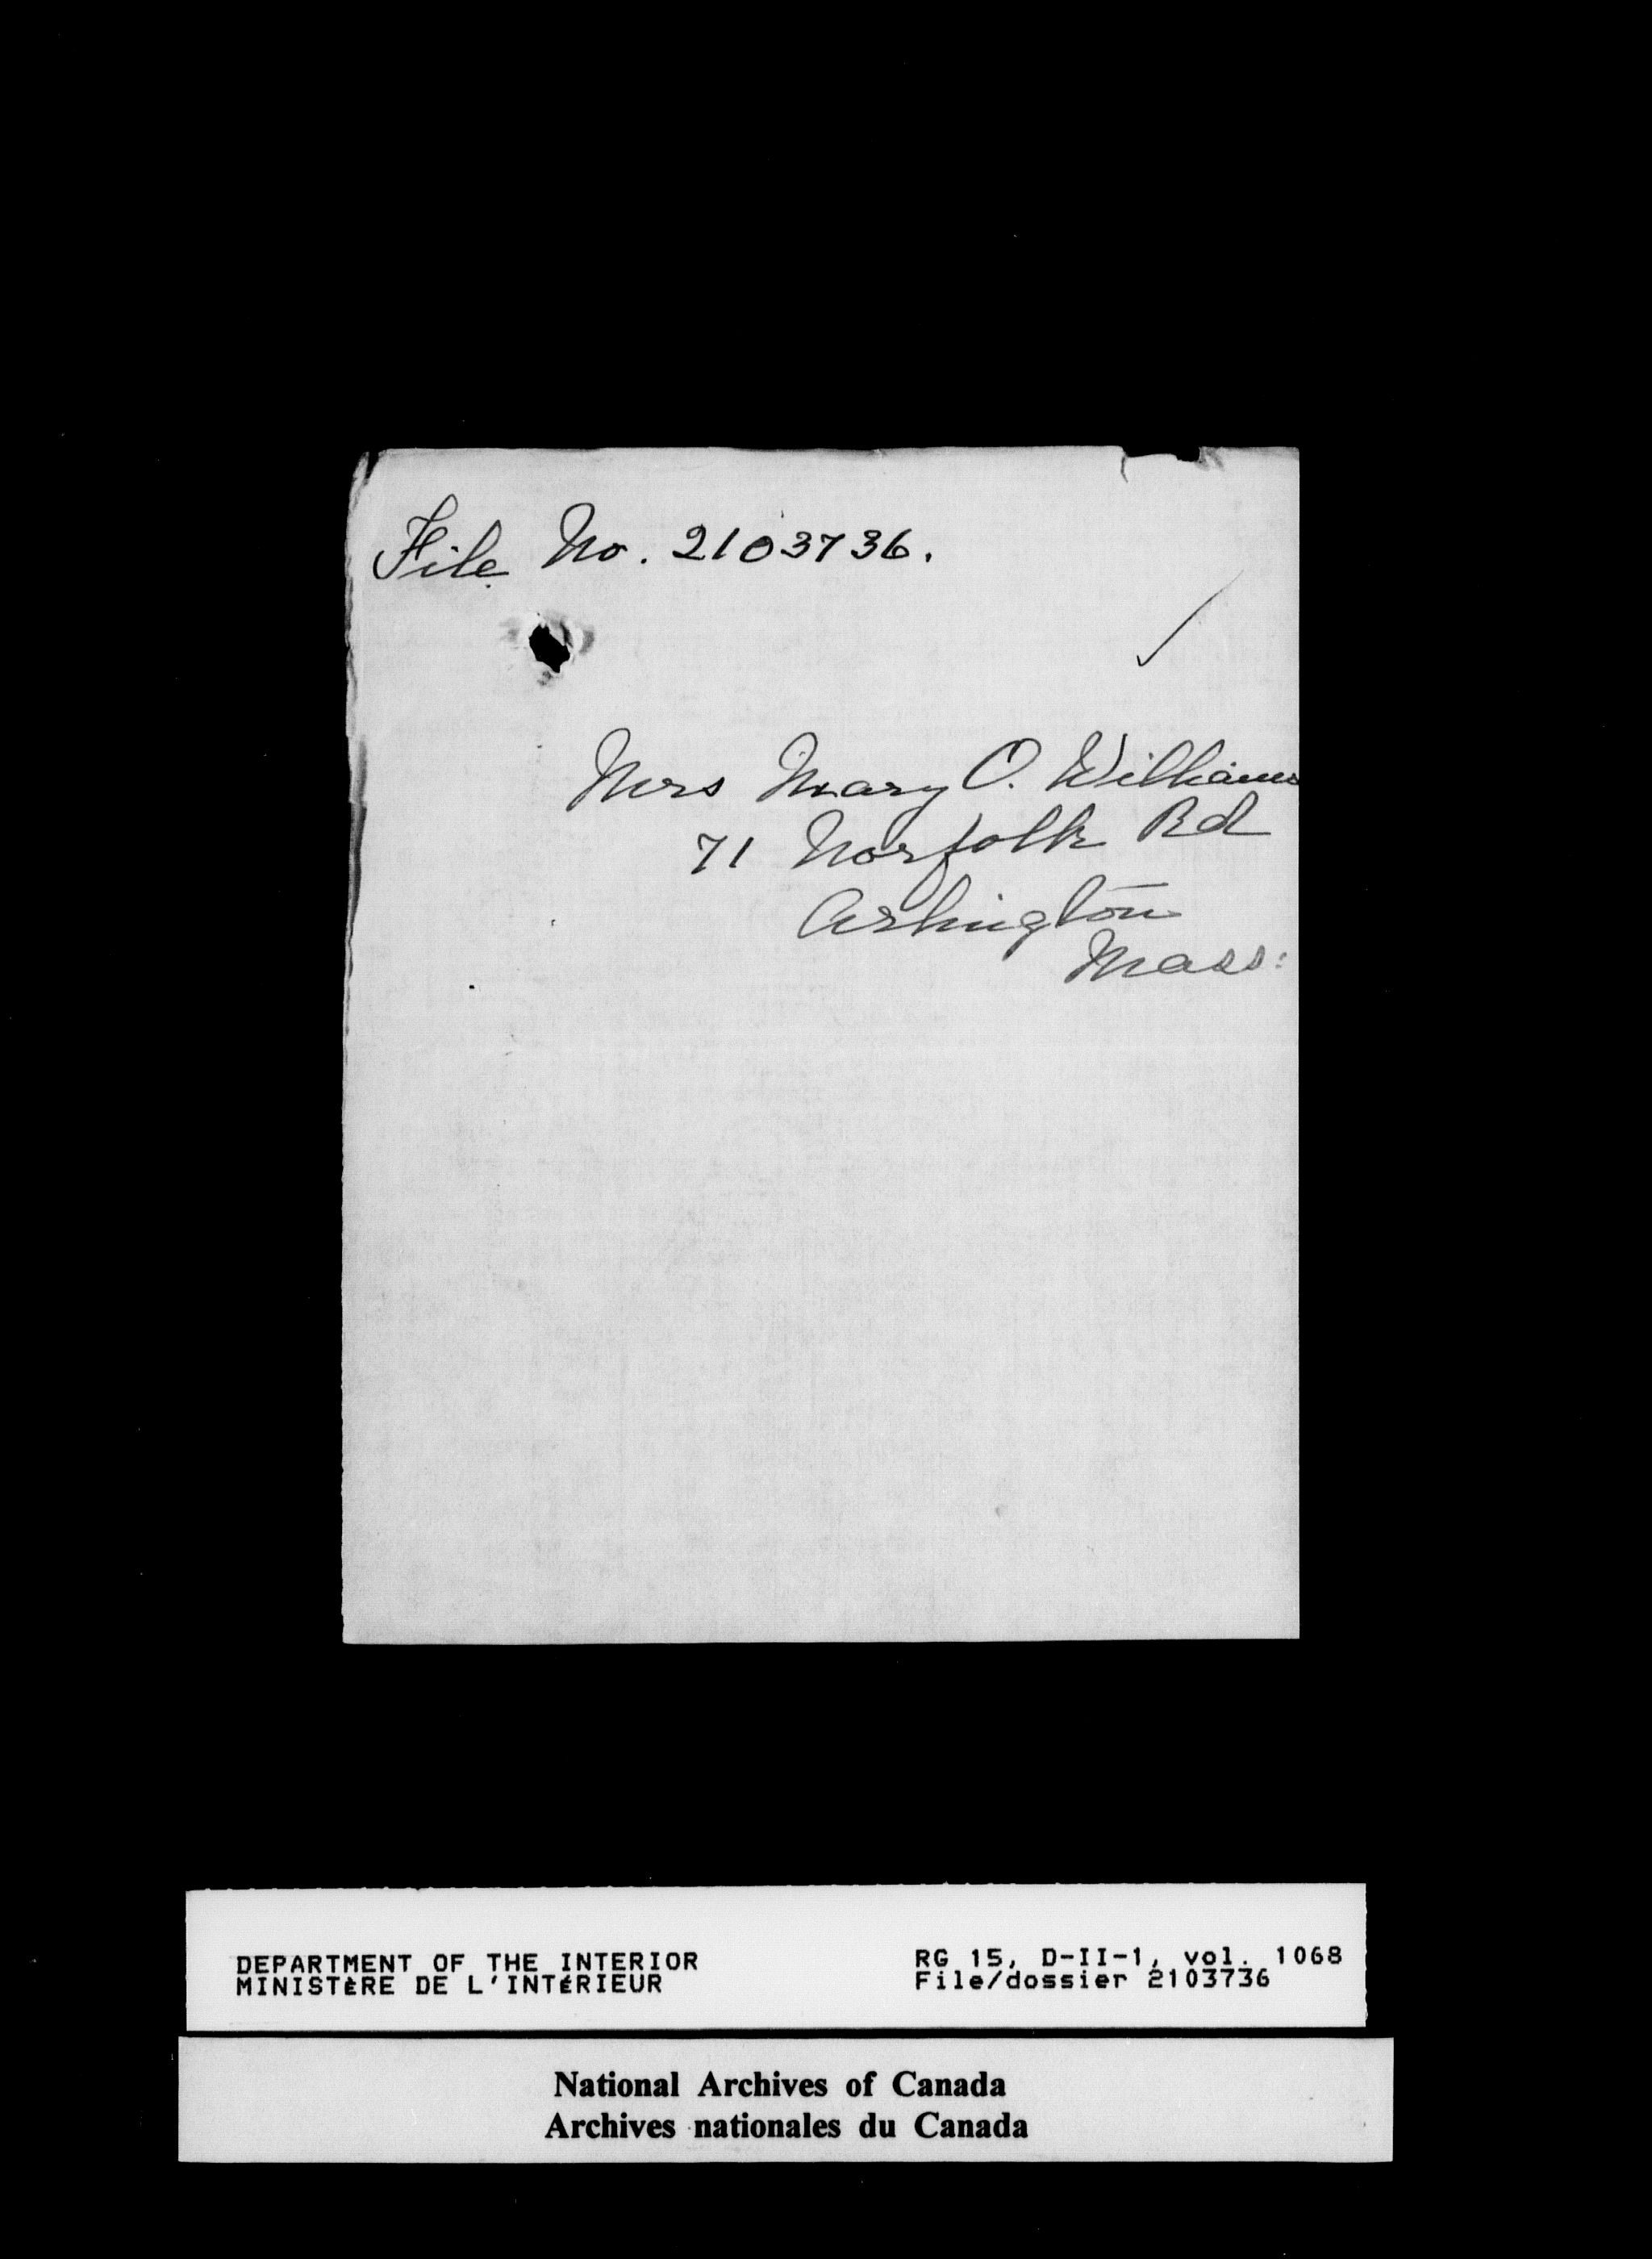 File No. 2103736.
Mrs Mary O. Williams
71 Norfolk Rd
Arlington
Mass:
DEPARTMENT OF THE INTERIOR
MINISTÈRE DE L'INTÉRIEUR
RG 15, D-II-1, vol. 1068
File/dossier 2103736
National Archives of Canada
Archives nationales du Canada